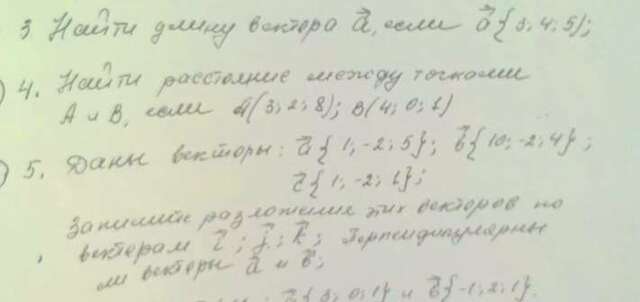 3 Найти длину вектора a⃗, если a⃗{3; 4; 5};
4. Найти расстояние между точками
А и В, если А(3; 2; 8); В(4; 0; 1)
5. Даны векторы: a⃗{1; -2; 5}; b⃗{10; -2; 4};
c⃗{1; -2; 1};
Запишите разложение этих векторов по
векторам i⃗; j⃗; k⃗; Перпендикулярны
ли векторы a⃗ и b⃗;
a⃗{3; 0; 1} и b⃗{-1; 2; 1}.